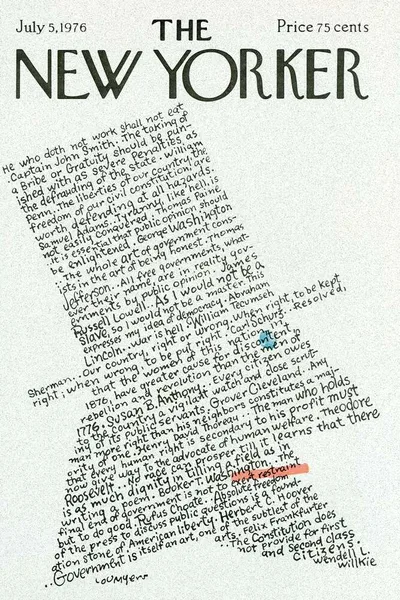 July 5, 1976
THE
Price 75 cents
NEW YORKER
He who doth not work shall not eat
Captain John Smith. The taking of
a Bribe or Gratuity should be pun-
ished with as severe Penalties as
the defrauding of the state. William
Penn. The liberties of our country, the
freedom of our civil constitution, are
worth defending at all hazards.
Samuel Adams. Tyranny, like hell, is
not easily conquered. Thomas Paine
It is essential that Public opinion should
be enlightened. George Washington
The whole art of government cons-
ists in the art of being honest. Thomas
Jefferson. All free governments, what-
ever their name, are in reality gov-
ernments by public opinion. James
Russell Lowell. As I would not be a
slave, so I would not be a master. This
expresses my idea of democracy. Abraham
Lincoln. War is hell. William Tecumseh
Sherman. Our country, right or wrong. When right, to be kept
right; when wrong, to be put right. Carl Schurz. Resolved,
that the women of this nation in
1876, have greater cause for discontent,
rebellion and revolution than the men of
1776. Susan B. Anthony. Every citizen owes
to the country a vigilant watch and close scrut-
iny of its public servants. Grover Cleveland. Any
man more right than his neighbors constitutes a maj-
ority of one. Henry David Thoreau. The man who holds
that every human right is secondary to his profit must
now give way to the advocate of human welfare. Theodore
Roosevelt. No race can prosper till it learns that there
is as much dignity in tilling a field as in
writing a poem. Booker T. Washington. The
final end of Government is not to exert restraint
but to do good. Rufus Choate. Absolute freedom
of the press to discuss public questions is a found-
ation stone of American liberty. Herbert C. Hoover
..Government is itself an art, one of the subtlest of the
arts. Felix Frankfurter
The Constitution does
not provide for first
and second class
Citizens.
Wendell L.
Willkie